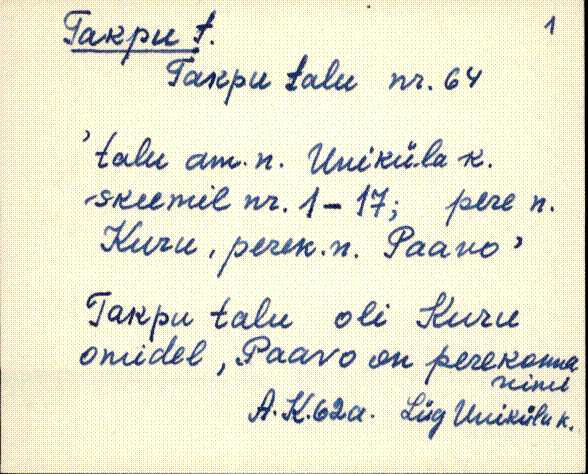 Takpu t. 1
Takpu talu nr. 64
'talu am. n. Uniküla k.
skeemil nr. 1-17; pere n.
Kuru, perek. n. Paavo'
Takpu talu oli Kuru
omidel, Paavo on perekonna
nimi
A. K. 62 a. Lüg Uniküla k.